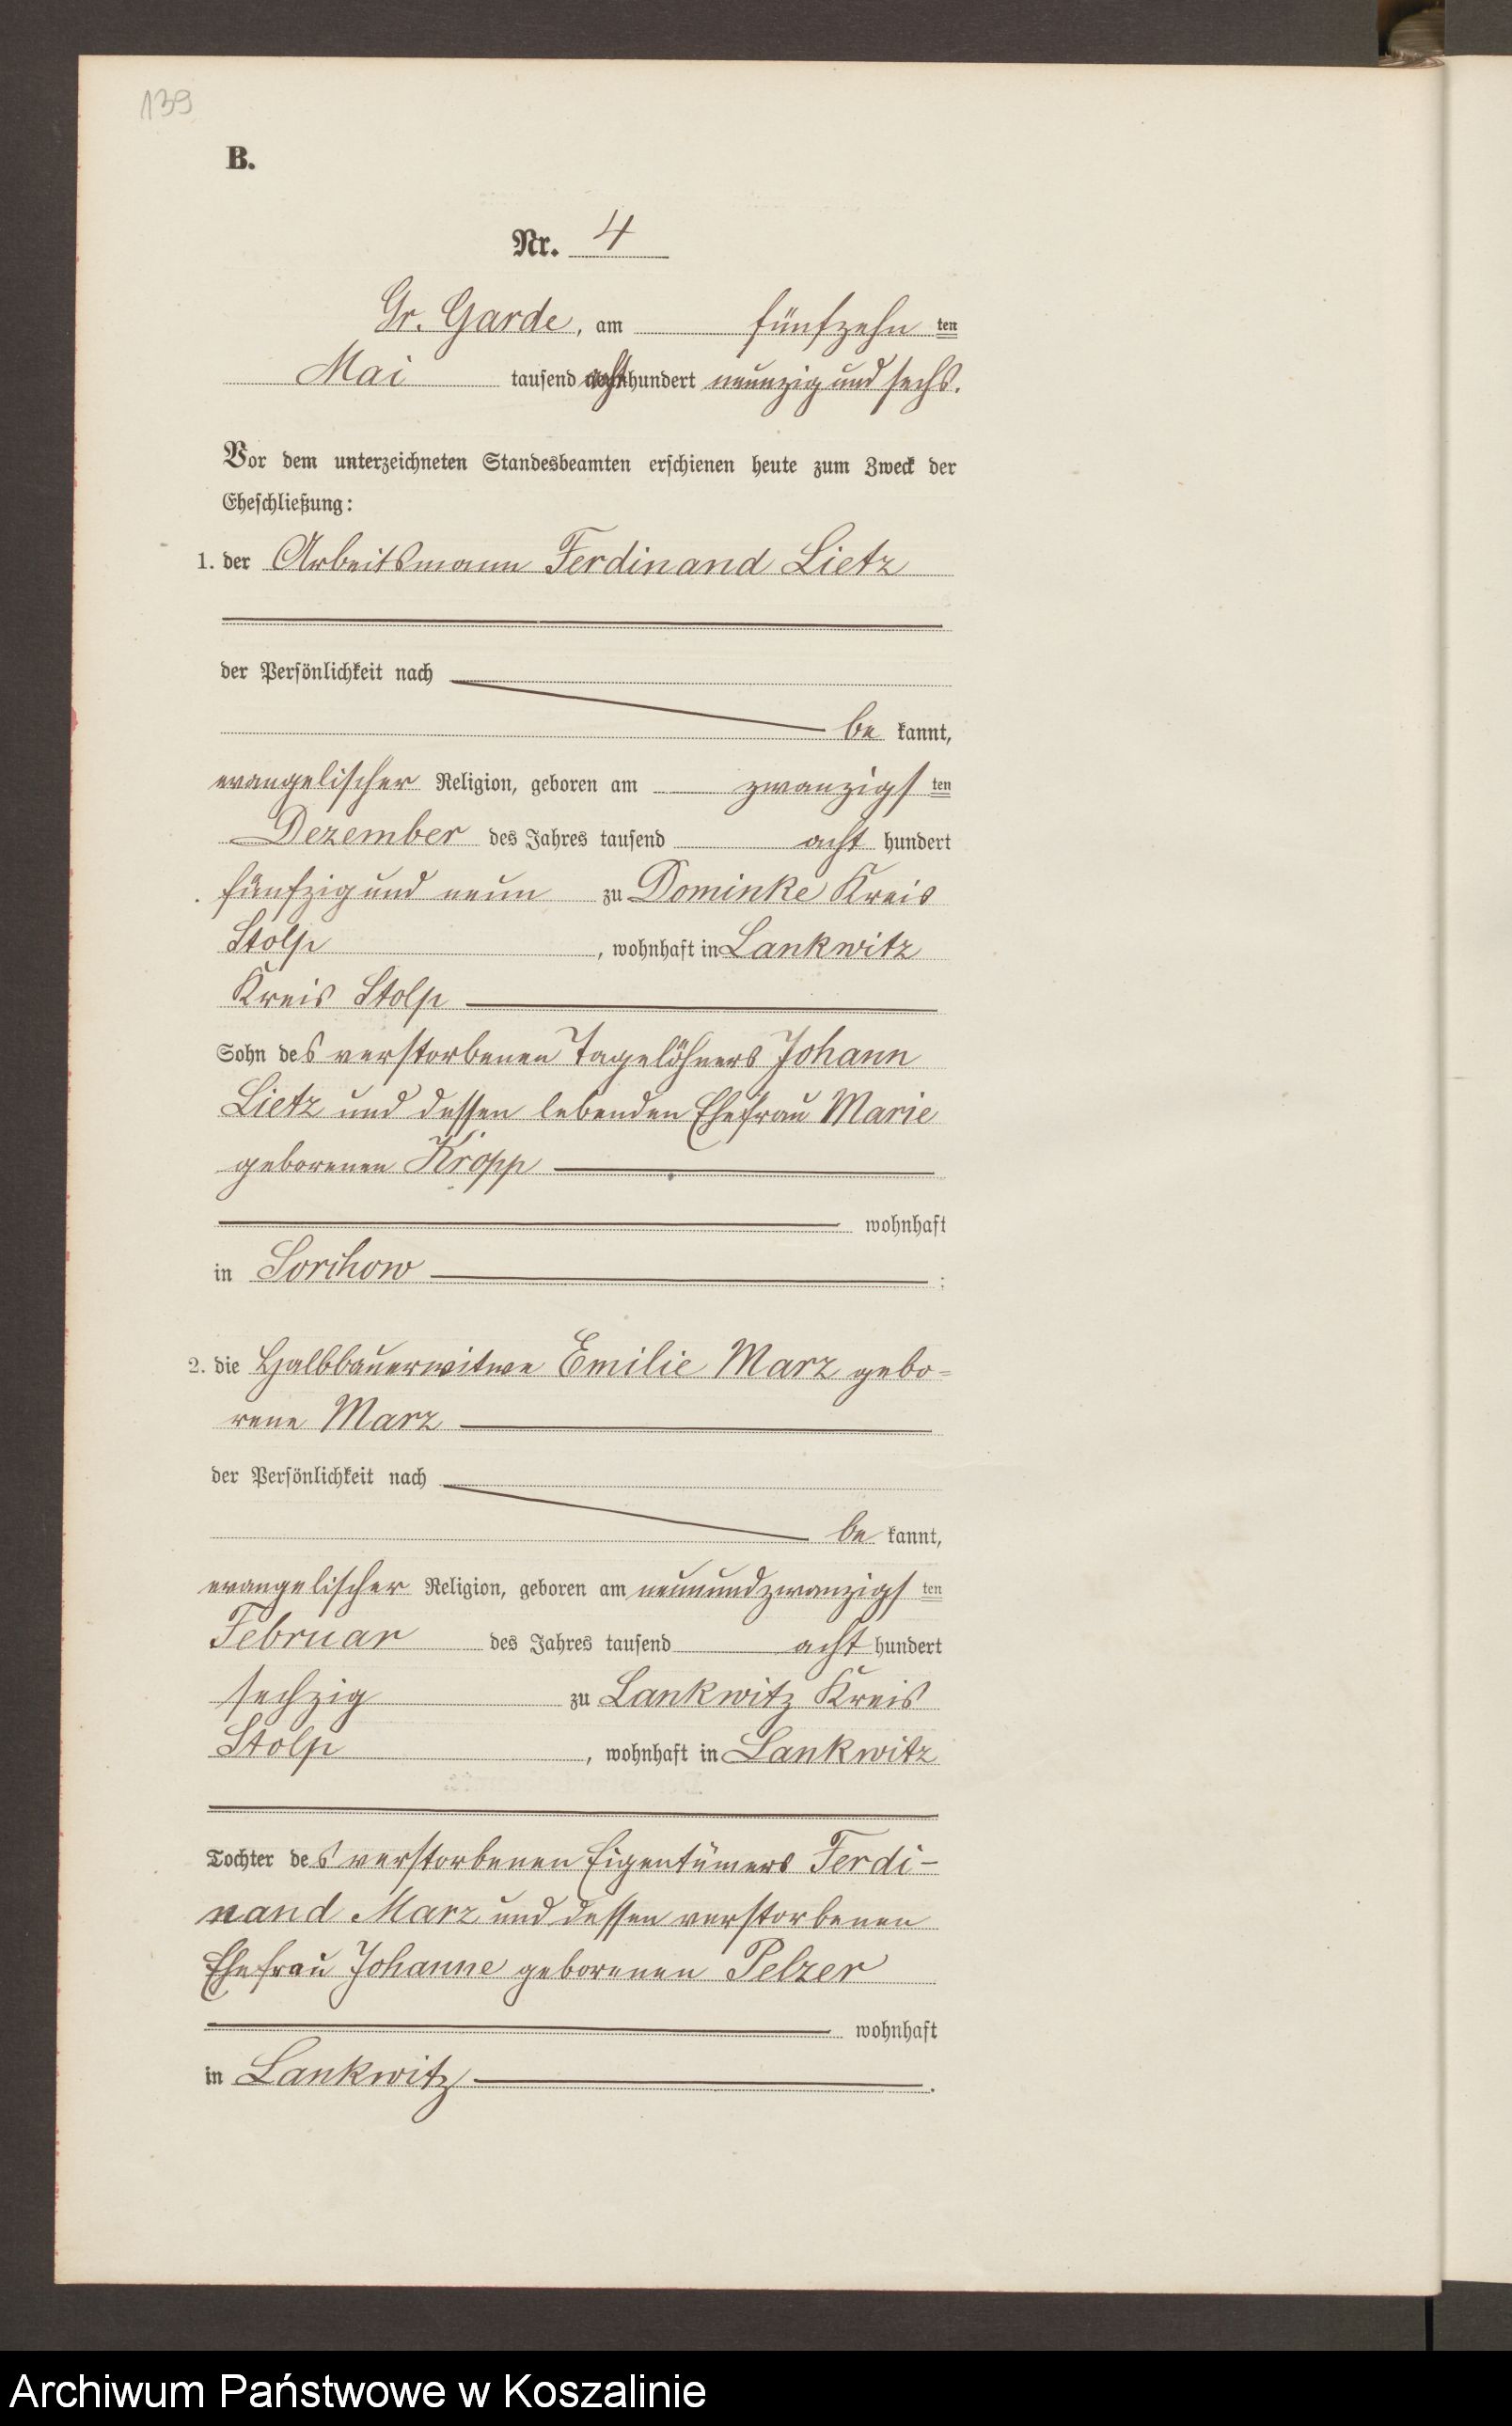 139
B.
Nr. 4
Gr. Garde, am fünfzehn ten
Mai tausend achthundert neunzig und sechs.
Vor dem unterzeichneten Standesbeamten erschienen heute zum Zweck der
Eheschließung:
1. der Arbeitsmann Ferdinand Lietz
der Persönlichkeit nach
be kannt,
evangelischer Religion, geboren am zwanzigs ten
Dezember des Jahres tausend acht hundert
fünfzig und neun zu Dominke Kreis
Stolp, wohnhaft in Lankwitz
Kreis Stolp
Sohn des verstorbenen Tagelöhners Johann
Lietz und dessen lebenden Ehefrau Marie
geborenen Kropp
wohnhaft
in Sorchow;
2. die Halbbauerwitwe Emilie Marz gebo-
rene Marz
der Persönlichkeit nach
be kannt,
evangelischer Religion, geboren am neunundzwanzigs ten
Februar des Jahres tausend acht hundert
sechzig zu Lankwitz Kreis
Stolp, wohnhaft in Lankwitz
Tochter des verstorbenen Eigentümers Ferdi-
nand Marz und dessen verstorbenen
Ehefrau Johanne geborenen Pelzer
wohnhaft
in Lankwitz.
Archiwum Państwowe w Koszalinie